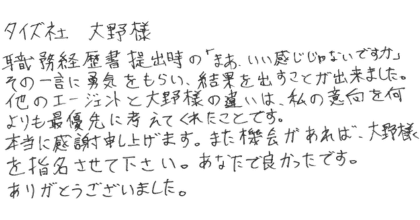 タイズ社　大野様
職務経歴書提出時の「まあ、いい感じじゃないですか」
その一言に勇気をもらい、結果を出すことが出来ました。
他のエージェントと大野様の違いは、私の意向を何
よりも最優先に考えてくれたことです。
本当に感謝申し上げます。また機会があれば、大野様
を指名させて下さい。あなたで良かったです。
ありがとうございました。